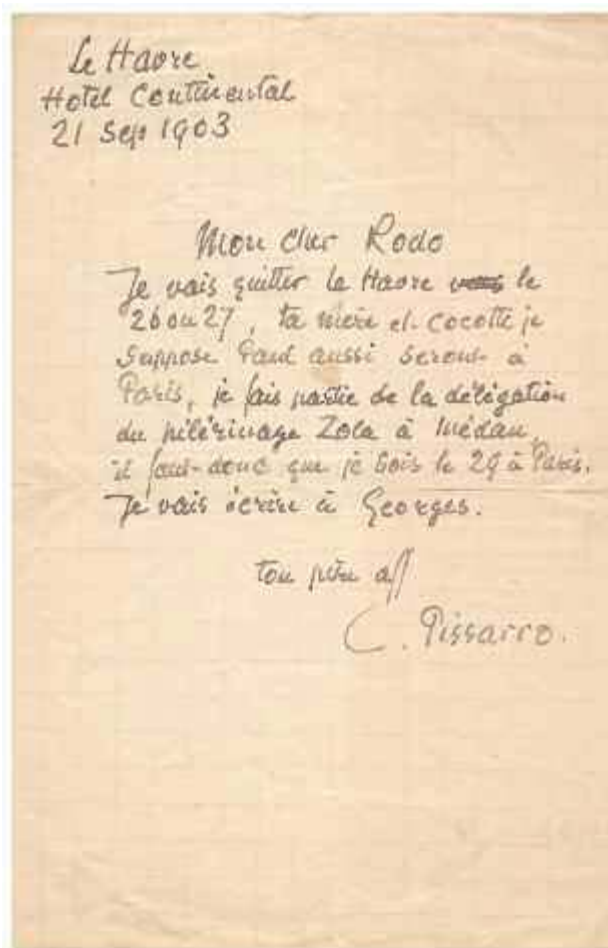 Le Havre
Hotel Continental
21 Sep 1903
Mon cher Rodo
Je vais quitter le Havre le
26 ou 27, ta mère et Cocotte je
suppose Paul aussi seront à
Paris, je fais partie de la délégation
du pilérinage Zola à Médan,
il faut donc que je sois le 29 à Paris.
Je vais écrire à Georges.
ton père aff
C. Pissarro.